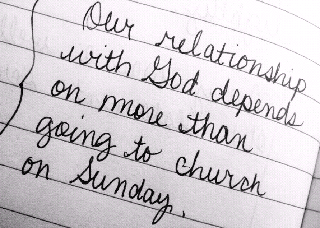 Our relationship
with God depends
on more than
going to church
on Sunday.